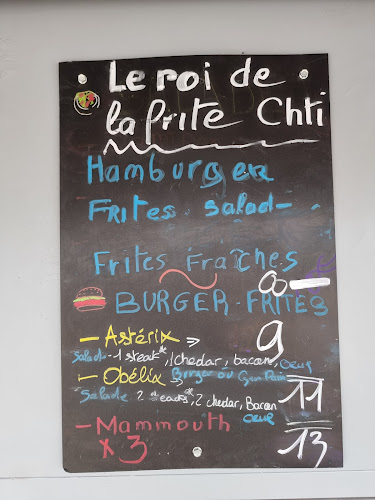 Le roi de
la frite Chti
Hamburger
FRites. salad-
Frites Fraîches
8-
BURGER-FRITES
- Astérix 9
Salad-1 steak, 1 chedar, bacon, oeuf
- Obélix Burger ou Gran Pain 11
Salade 2 steacks, 2 chedar, Bacon
oeuf
- Mammouth 13
x3